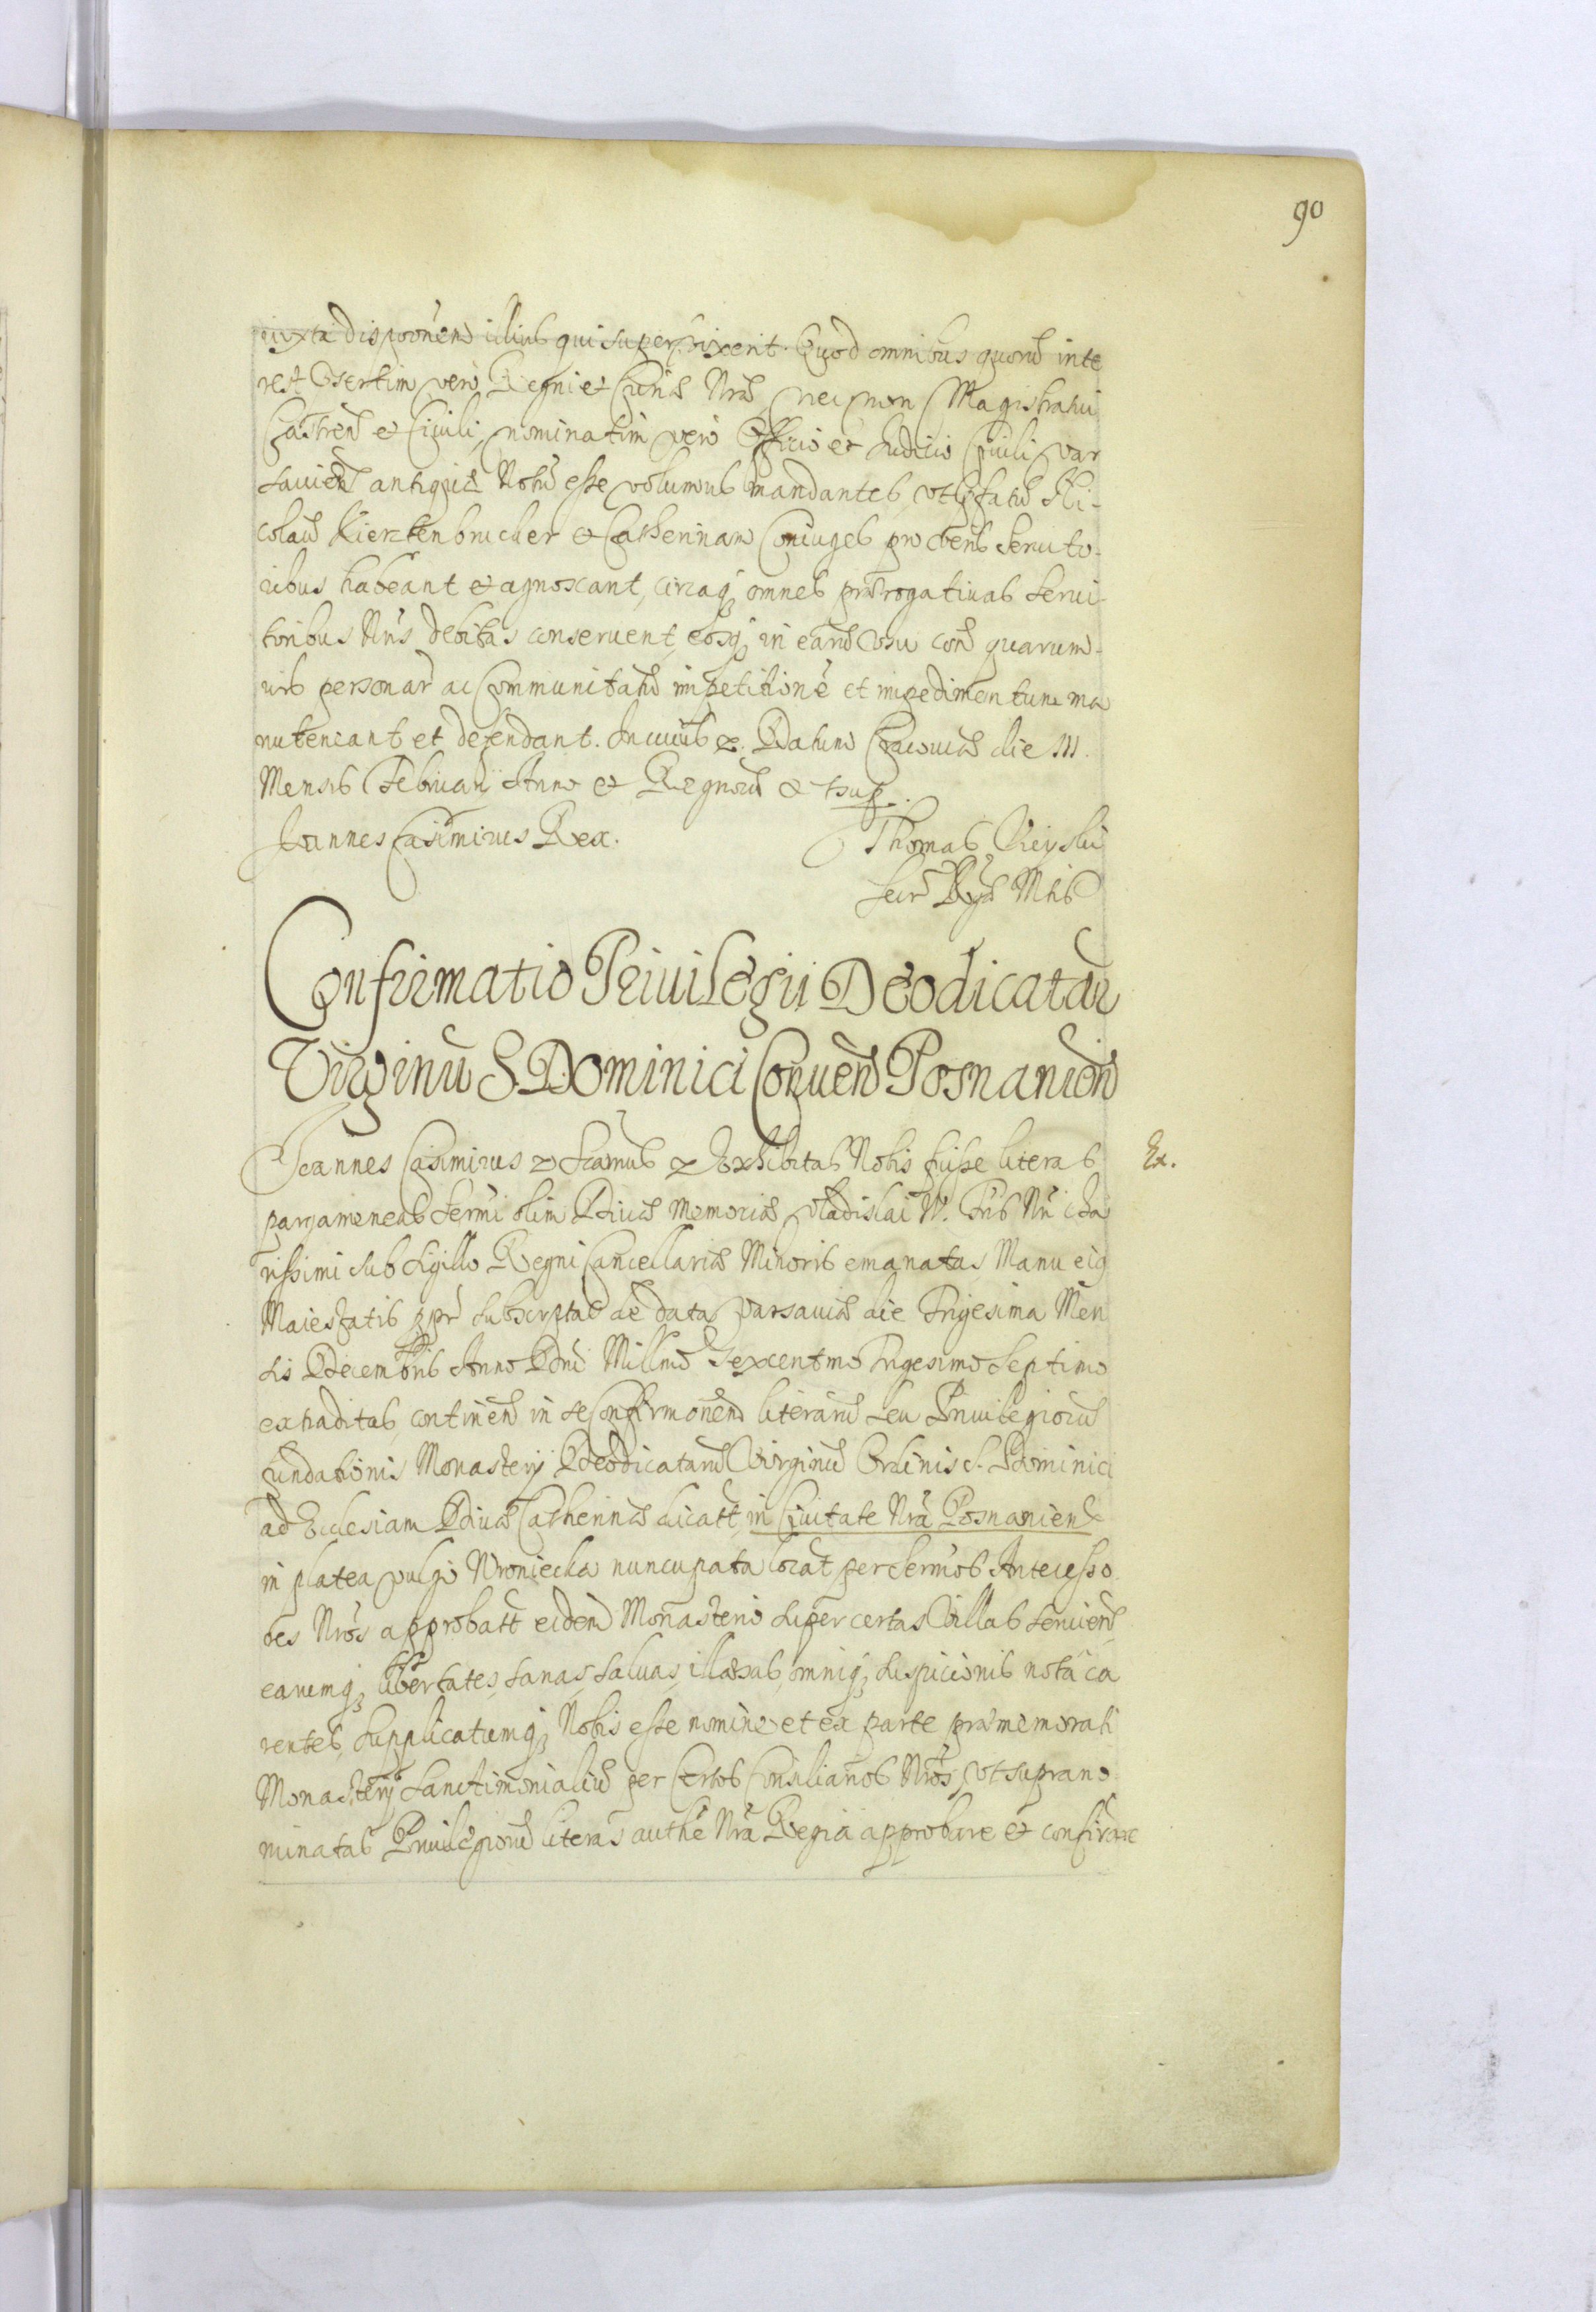 90
iuxta dispoonem illius qui supervixerit. Quod omnibus quorũ inte
rest Psertim vero Regni et Curiæ Nræ nec non Magistratui
Castren et Civili nominatim vero Officio et Iudicio Civili Var
saviens antiquæ Notũ esse volumus mandantes ut pfatũ Ni-
colaũ Kierztenbrucher et Catherinam Coniuges pro Servito-
ribus habeant et agnoscant, circaq omnes prærogativas servi-
toribus Nris debitas conservent, eosq in earũ usu quarum-
vis personar ac Communitatũ impetitionē et impedimentum ma
nuteneant et defendant. In cuius &. Datum Cracoviæ die III.
Mensis Februarii Anno & Regnorũ & ut sup.
Joannes Casimirus Rex.
Thomas Ueyski
Secr Rgæ Mtis
Confirmatio Privilegii Deodicatar
Virginũ S. Dominici Conven Posnanien
Joannes Casimirus & Significamus & Exhibitas Nobis fuisse literas
Ex.
pargameneas Sermi olim Divæ Memoriæ Vladislai IV. Fris Nri cha
rissimi sub sigillo Regni Cancellariæ Minoris emanatas, Manu eig
Maiestatis ppr subscriptas de data Varsaviæ die Trigesima Men
sis Decembris Anno Dni Millmo Sexcentmo Trigesimo Septimo
extraditas, continen in se Confirmonem literarũ seu Privilegiorũ
fundationis Monasterij Deodicatarũ Virginũ Ordinis S. Dominici
ad Ecclesiam Divæ Catherinæ dicatt, in Civitate Nra Posnanien
in platea vulgo Wroniecka nuncupata locat per Sermos Antecesso
res Nros approbatt eidem Monasterio super certas Villas servien,
earumq libertates, sanas, salvas, illæsas, omniq suspicionis nota ca
rentes, supplicatumq Nobis esse nomine et ex parte præmemorati
Monasterij Sanctimonialiũ per Certos Consiliarios Nros, ut supra no
minatas Privilegiorũ literas authe Nra Regia approbare et confirare